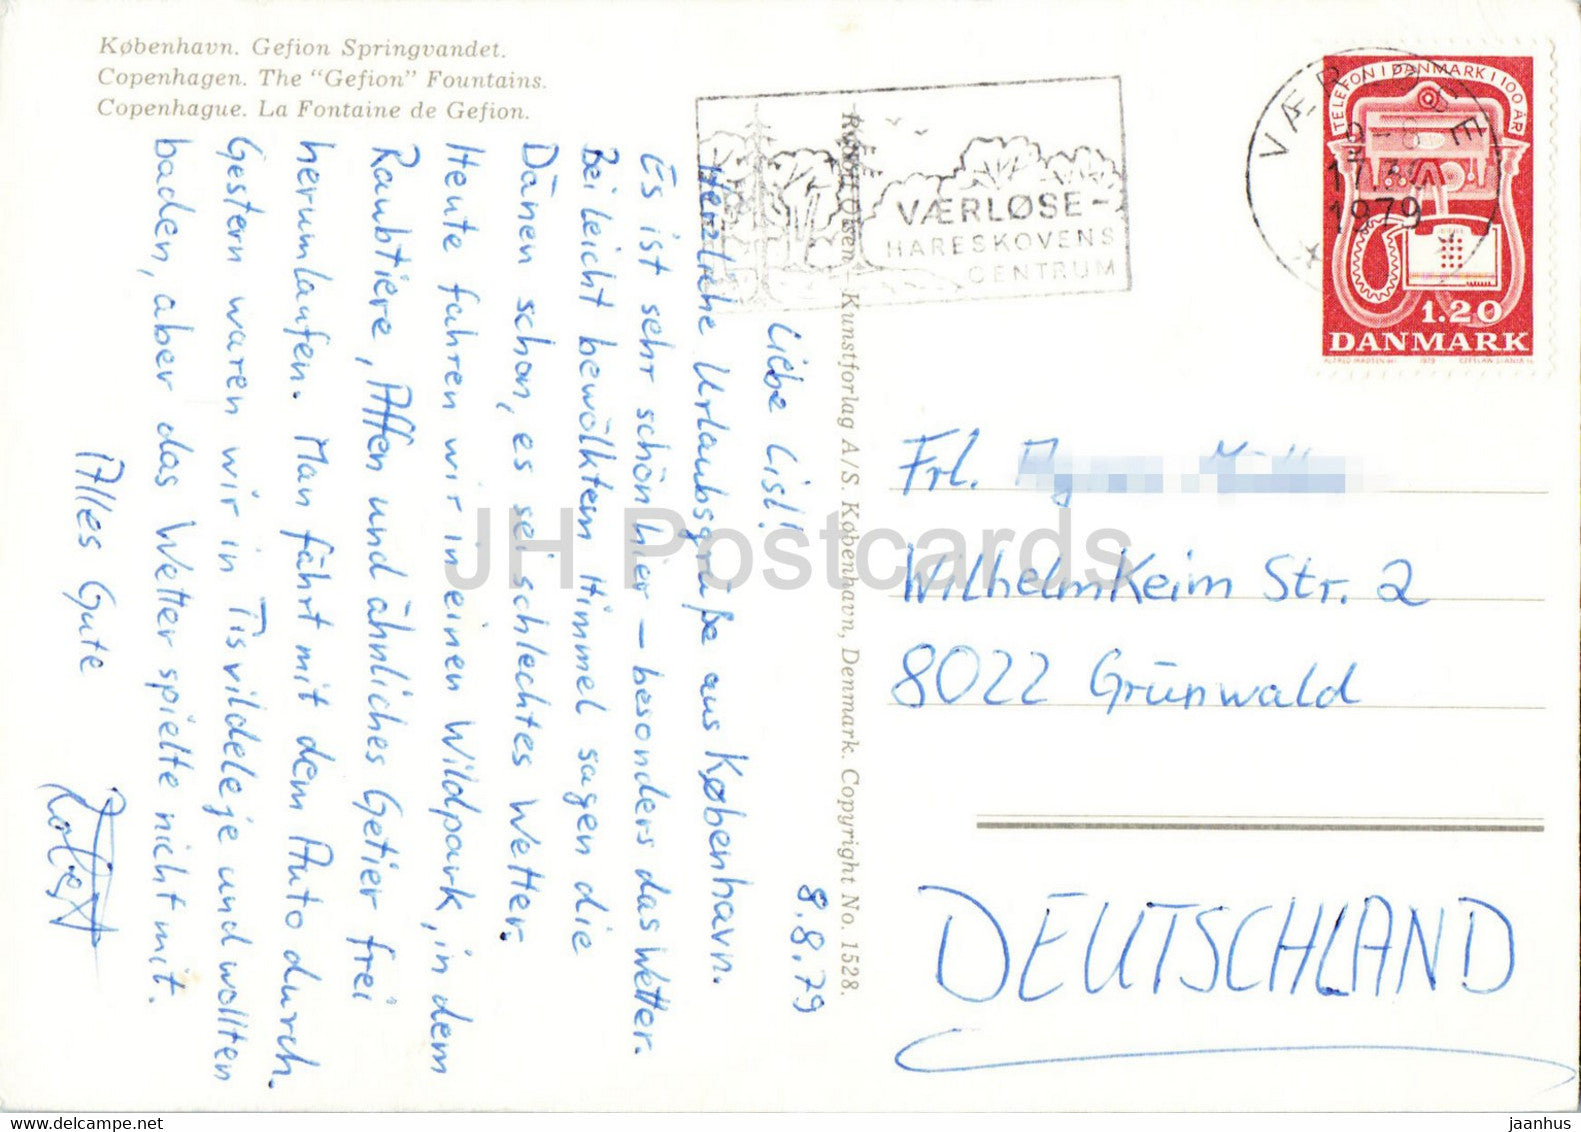 København. Gefion Springvandet.
Copenhagen. The "Gefion" Fountains.
Copenhague. La Fontaine de Gefion.
8.8.79
Liebe Lisl!
Herzliche Urlaubsgrüße aus København.
Es ist sehr schön hier – besonders das Wetter.
Bei leicht bewölktem Himmel sagen die
Dänen schon, es sei schlechtes Wetter.
Heute fahren wir in einen Wildpark, in dem
Raubtiere, Affen und ähnliches Getier frei
herumlaufen. Man fährt mit dem Auto durch.
Gestern waren wir in Tisvildeleje und wollten
baden, aber das Wetter spielte nicht mit.
Alles Gute
Kunstforlag A/S. København, Denmark. Copyright No. 1528.
VÆRLØSE-
HARESKOVENS
CENTRUM
VÆRLØSE
1979
TELEFON I DANMARK I 100 ÅR
1.20
DANMARK
Frl.
Wilhelmkeim Str. 2
8022 Grünwald
DEUTSCHLAND
JH Postcards
delcampe.net
jaanhus